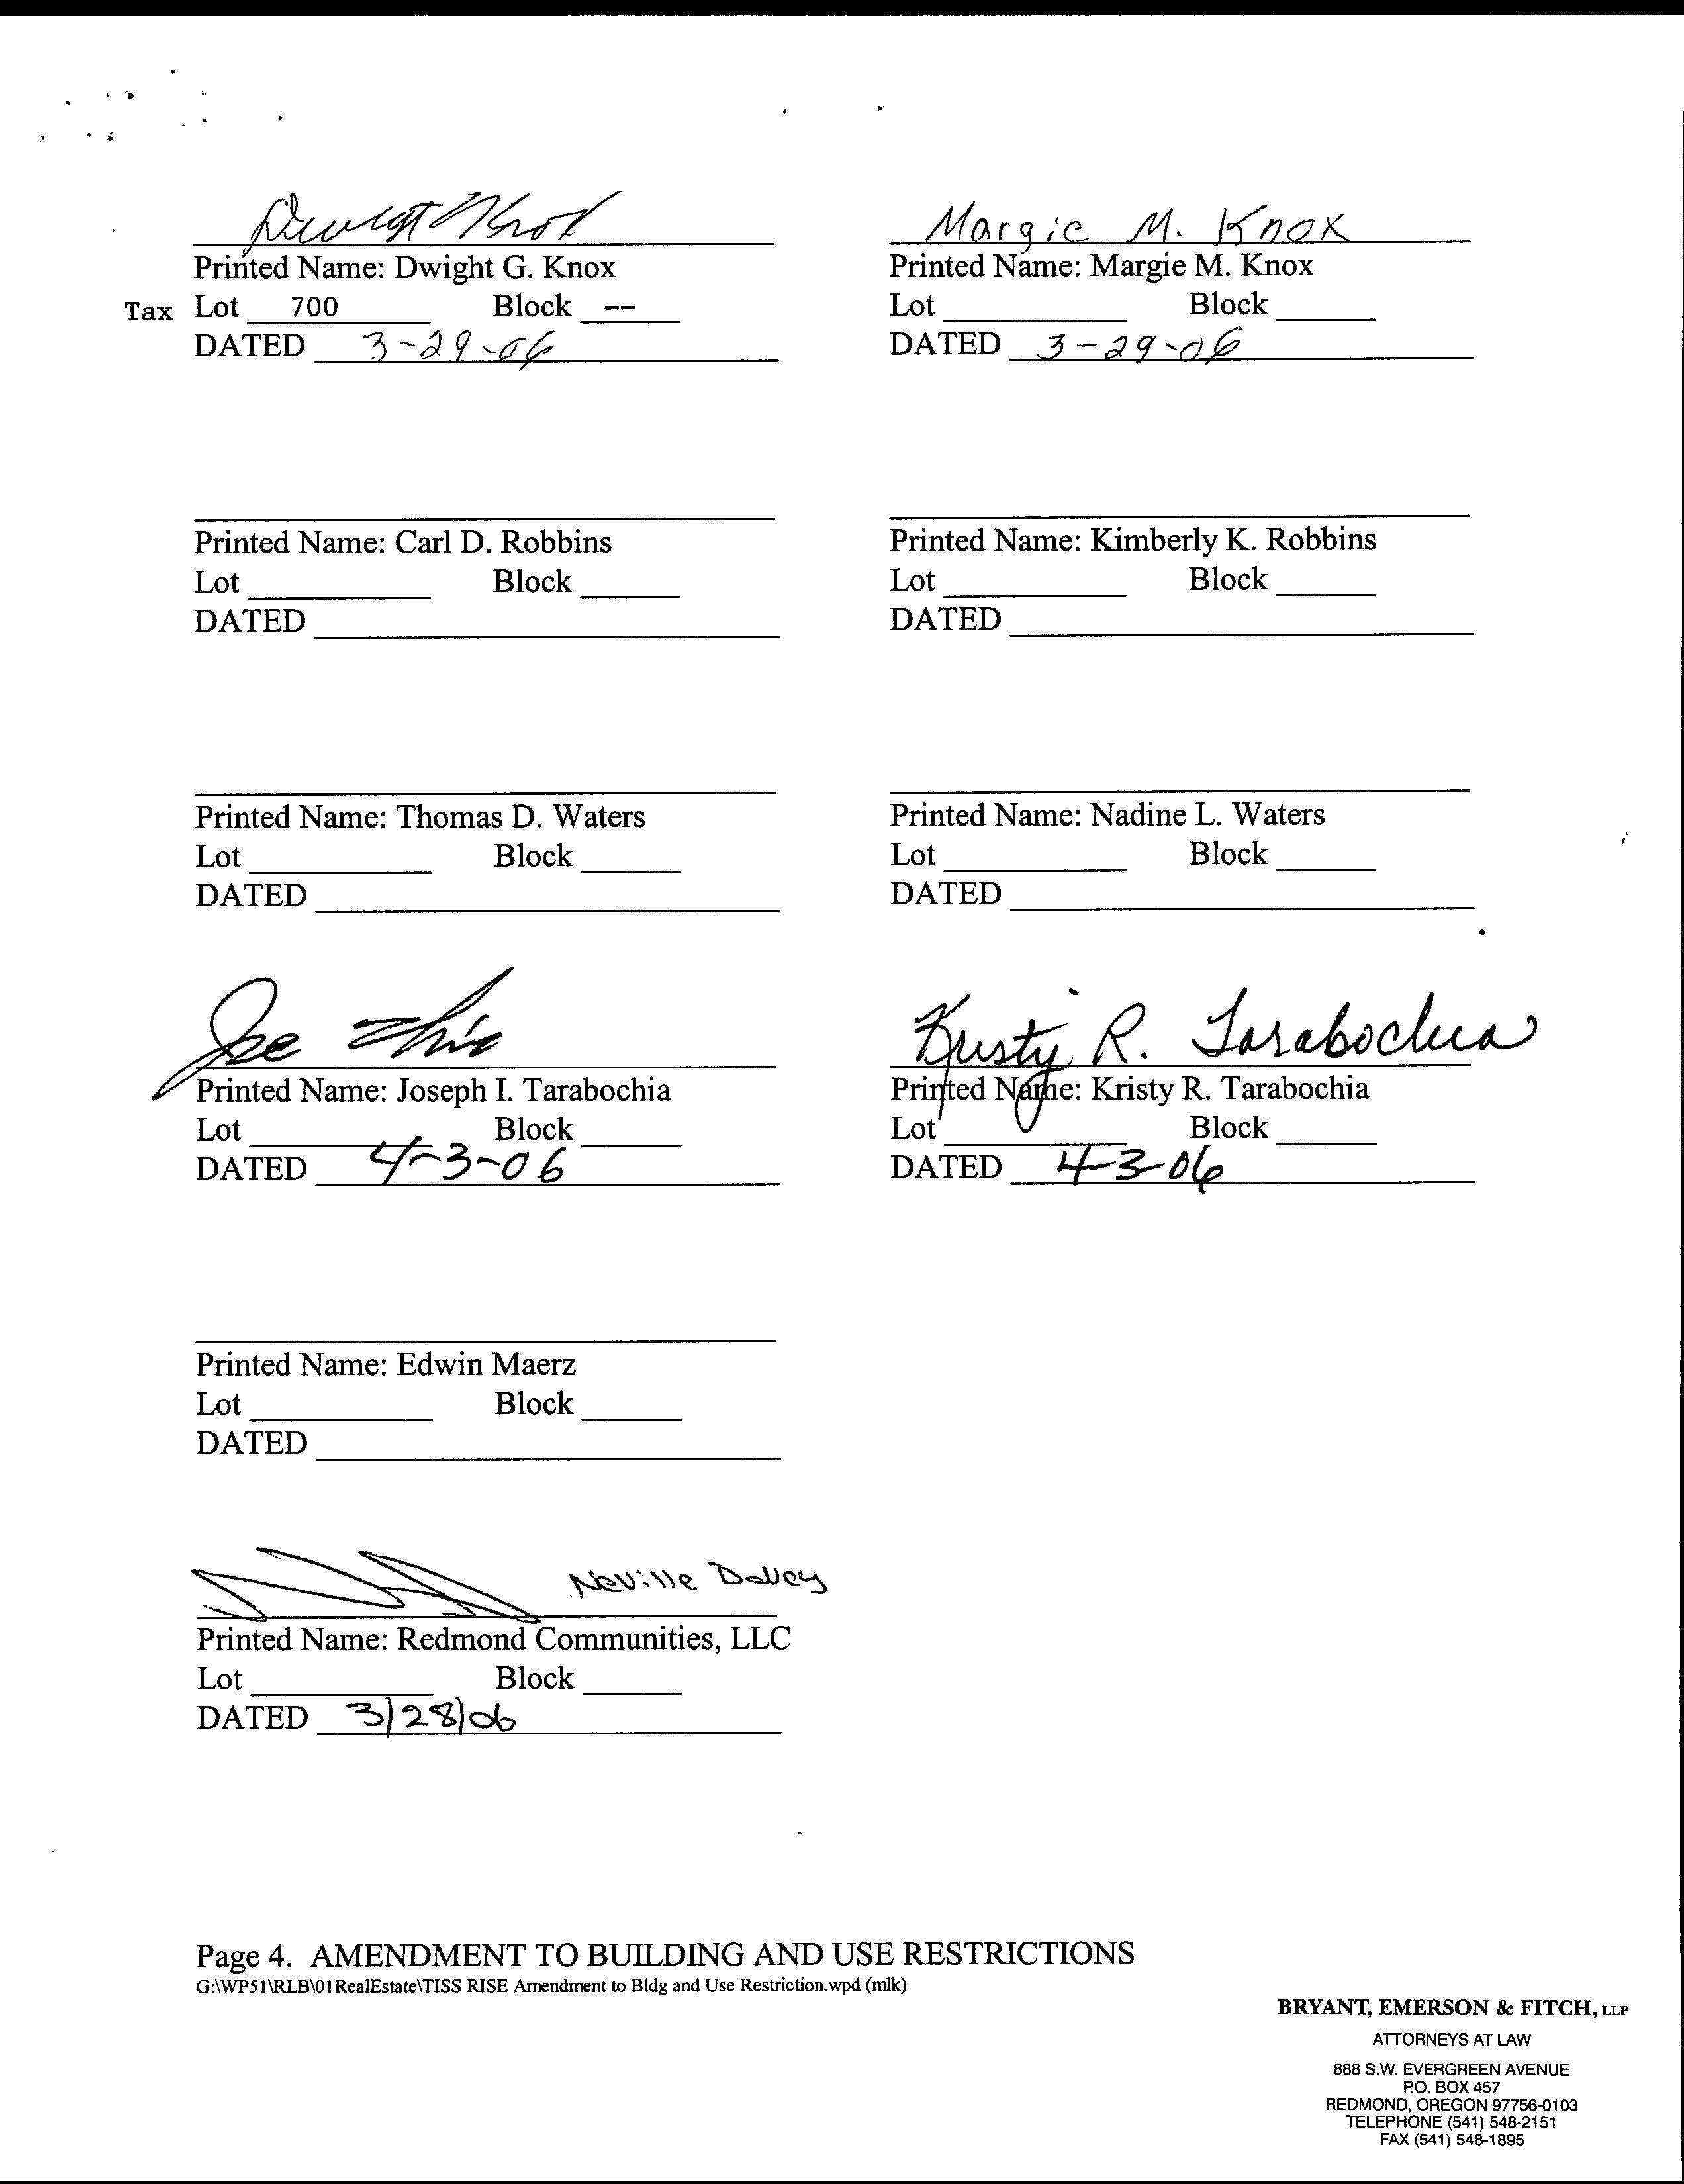 Dwight Knox
Margie M. Knox
Printed Name: Dwight G. Knox
Printed Name: Margie M. Knox
Tax Lot 700 Block --
Lot Block
DATED 3-29-06
DATED 3-29-06
Printed Name: Carl D. Robbins
Printed Name: Kimberly K. Robbins
Lot Block
Lot Block
DATED
DATED
Printed Name: Thomas D. Waters
Printed Name: Nadine L. Waters
Lot Block
Lot Block
DATED
DATED
Joe
Kristy R. Tarabochia
Printed Name: Joseph I. Tarabochia
Printed Name: Kristy R. Tarabochia
Lot Block
Lot Block
DATED 4-3-06
DATED 4-3-06
Printed Name: Edwin Maerz
Lot Block
DATED
Neville Dalley
Printed Name: Redmond Communities, LLC
Lot Block
DATED 3/28/06
Page 4. AMENDMENT TO BUILDING AND USE RESTRICTIONS
G:\WP51\RLB\01RealEstate\TISS RISE Amendment to Bldg and Use Restriction.wpd (mlk)
BRYANT, EMERSON & FITCH, LLP
ATTORNEYS AT LAW
888 S.W. EVERGREEN AVENUE
P.O. BOX 457
REDMOND, OREGON 97756-0103
TELEPHONE (541) 548-2151
FAX (541) 548-1895